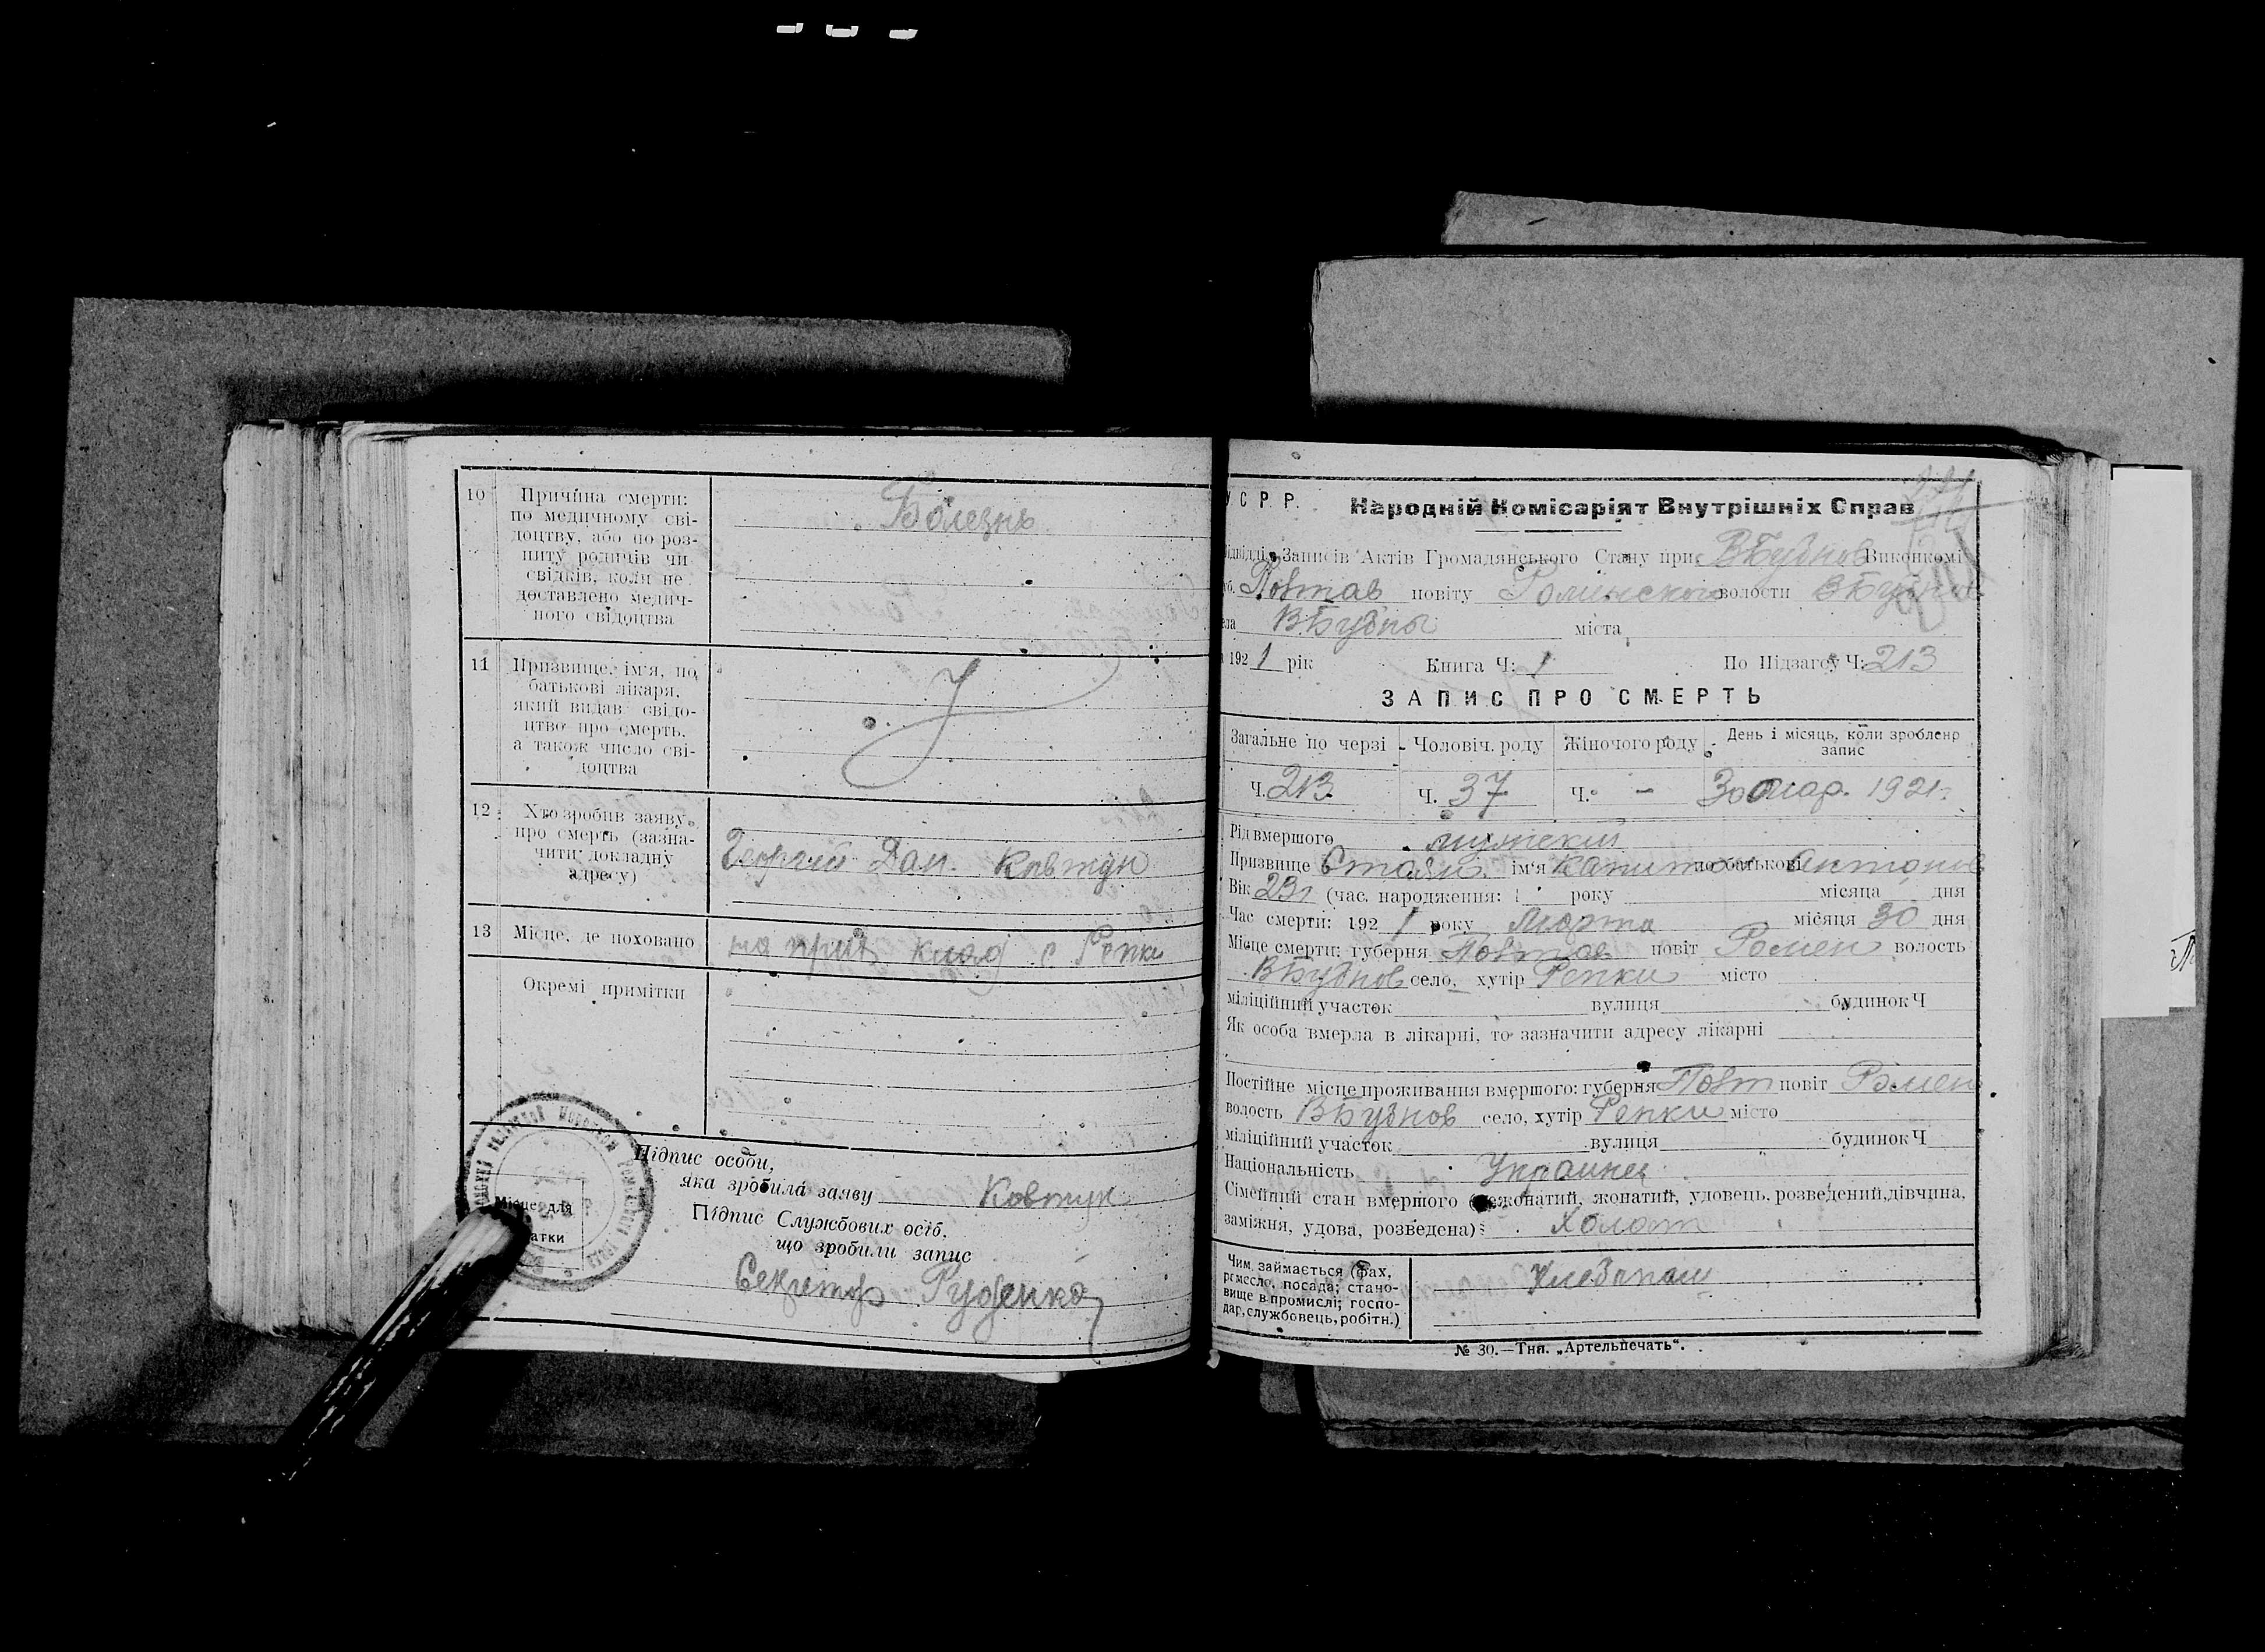 10
Причина смерти:
по медичному сві-
доцтву, або по роз-
питу родичів чи
свідків, коли не
доставлено медич-
ного свідоцтва
Болезнь
11
Призвище, ім'я, по
батькові лікаря,
який видав свідо-
цтво про смерть,
а також число сві-
доцтва
12
Хто зробив заяву
про смерть (зазна-
чити докладну
адресу)
Георгий Дан. Ковтун
13
Місце, де поховано
на прих клад с Репки
Окремі примітки
Підпис особи,
яка зробила заяву Ковтун
Підпис Службових осіб,
що зробили запис
Місце для
атки
Секретар Руденко
У С Р Р.
Народній Комісаріят Внутрішніх Справ
Записів Актів Громадянського Стану при ВБубнов Виконкомі
Полтав повіту Роменского волости ВБубнов
ВБубны міста
192 1 рік Книга Ч: 1 По Підзагсу Ч: 213
ЗАПИС ПРО СМЕРТЬ
Загальне по черзі Чоловіч. роду Жіночого роду День і місяць, коли зроблено
запис
Ч. 213 Ч. 37 Ч. - 30 мар. 1921
Рід вмершого мужский
Призвище ім'я Капитон по батькові Антонов
Вік 23 г (час. народження: 1 року місяца дня
Час смерти: 192 1 року Марта місяця 30 дня
Місце смерти: губерня Полтав повіт Ромен волость
ВБубнов село, хутір Репки місто
міліційний участок вулиця будинок Ч
Як особа вмерла в лікарні, то зазначити адресу лікарні
Постійне місце проживання вмершого: губерня Полт повіт Ромен
волость ВБубнов село, хутір Репки місто
міліційний участок вулиця будинок Ч
Національність Украинец
Сімейний стан вмершого (нежонатий, жонатий, удовець, розведений, дівчина,
заміжня, удова, розведена): Холост
Чим займається (фах,
ремесло, посада; стано-
вище в промислі; госпо-
дар, службовець, робітн.)
Хлебопаш
№ 30.—Тип. „Артельпечать".